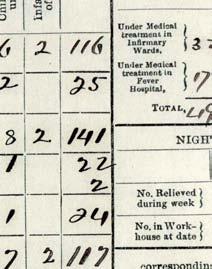 of
6 2 116
2 25
8 2 141
1 22
2
1 24
7 2 117
Under Medical
treatment in
Infirmary
Wards,
Under Medical
treatment in
Fever
Hospital,
17
TOTAL,
NIGH
No. Relieved
during week
No. in Work-
house at date
corresponding